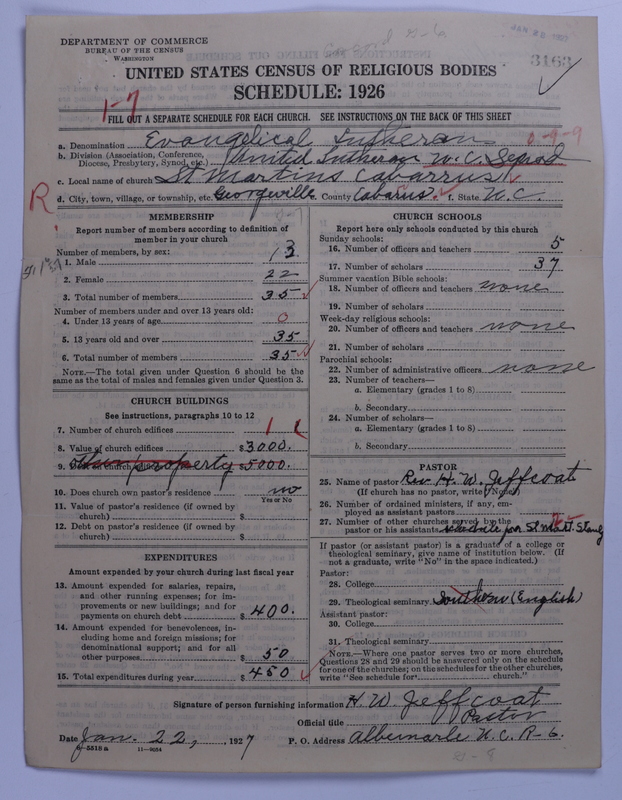 DEPARTMENT OF COMMERCE
BUREAU OF THE CENSUS
WASHINGTON
3163
UNITED STATES CENSUS OF RELIGIOUS BODIES
SCHEDULE: 1926
1-7
FILL OUT A SEPARATE SCHEDULE FOR EACH CHURCH. SEE INSTRUCTIONS ON THE BACK OF THIS SHEET
a. Denomination Evangelical Lutheran 0-9-9
b. Division (Association, Conference, Diocese, Presbytery, Synod, etc.) United Lutheran N.C. Synod
c. Local name of church St Martins Cabarrus
R
d. City, town, village, or township, etc. Georgeville e. County Cabarrus f. State N.C.
MEMBERSHIP
Report number of members according to definition of
member in your church
Number of members, by sex:
1. Male 13
2. Female 22
3. Total number of members 35
Number of members under and over 13 years old:
4. Under 13 years of age 0
5. 13 years old and over 35
6. Total number of members 35
NOTE.—The total given under Question 6 should be
same as the total of males and females given under Question 3.
CHURCH BUILDINGS
See instructions, paragraphs 10 to 12
7. Number of church edifices 1
8. Value of church edifices $3000.
9. other property $5000.
10. Does church own pastor's residence no
Yes or No
11. Value of pastor's residence (if owned by
church) $
12. Debt on pastor's residence (if owned by
church) $
EXPENDITURES
Amount expended by your church during last fiscal year
13. Amount expended for salaries, repairs,
and other running expenses; for im-
provements or new buildings; and for
payments on church debt $400.
14. Amount expended for benevolences, in-
cluding home and foreign missions; for
denominational support; and for all
other purposes $50
15. Total expenditures during year $450
CHURCH SCHOOLS
Report here only schools conducted by this church
Sunday schools:
16. Number of officers and teachers 5
17. Number of scholars 37
Summer vacation Bible schools:
18. Number of officers and teachers none
19. Number of scholars
Week-day religious schools:
20. Number of officers and teachers none
21. Number of scholars
Parochial schools:
22. Number of administrative officers none
23. Number of teachers—
a. Elementary (grades 1 to 8)
b. Secondary
24. Number of scholars—
a. Elementary (grades 1 to 8)
b. Secondary
PASTOR
25. Name of pastor Rev H. W. Jeffcoat
(If church has no pastor, write "None")
26. Number of ordained ministers, if any, em-
ployed as assistant pastors
27. Number of other churches served by the
pastor or his assistants for St Mart Stanly
If pastor (or assistant pastor) is a graduate of a college or
theological seminary, give name of institution below. (If
not a graduate, write "No" in the space indicated.)
Pastor:
28. College
29. Theological seminary Southern (English)
Assistant pastor:
30. College
31. Theological seminary
NOTE.—Where one pastor serves two or more churches,
Questions 28 and 29 should be answered only on the schedule
for one of the churches; on the schedules for the other churches,
write "See schedule for church."
Signature of person furnishing information H. W. Jeffcoat
Official title Pastor
Date Jan. 22, 1927 P. O. Address Albemarle N.C. R-6.
8-5518a 11-9054